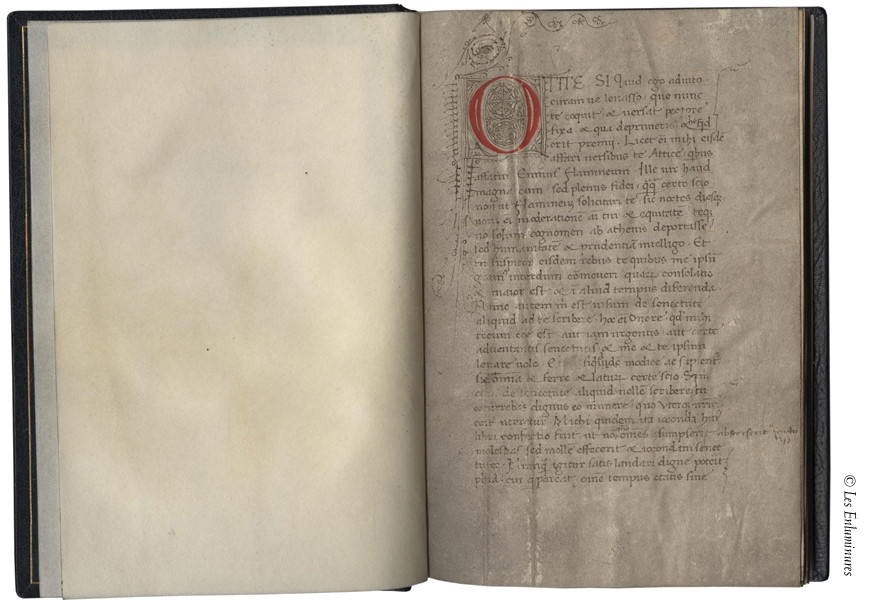 O TITE SI Quid ego adiuto
curam ue leuasso · que nunc
te coquit & uersat pectore
fixa & qua deprimeris &hecqd
erit premij · Licet ei mihi eisdē
affari uersibus te Attice qbus
affatur Ennius Flamineum · Ille uir haud
magna cum · sed plenus fidei · qq̄ certo scio
non ut Flamineus solicitari te sic noctes diesq;
noui ei moderationē ai tui & equitatē teq;
nō solum cognomen ab athenis deportasse
sed humanitatē & prudentiā intelligo · Et
tn suspicor eisdem rebus te quibus me ipsū
grauius interdum cōmoueri quarū consolatio
& maior est & ī aliud tempus diferenda
Nunc autem m̄ est uisum de senectute
aliquid ad te scribere · hoc ei onere · qd mihi
tecum est aut iam urgentis aut certe
aduentantis senectutis & me & te ipsum
leuare uolo · siquidē modice ac sapient
sic omnia & ferre & laturū certe scio Sz m
de senectute aliquid uellē scribere tu
occurrebas dignus eo munere · quo uterq;
Michi quidem ita iocunda hui
libri confectio fuit ut nō omnes absterserit
molestias sed molle effecerit & iocundam senec
tutē · igitur satis laudari digne poterit
phīa · cui q pareat omne tempus etatis sine
© Les Enluminures